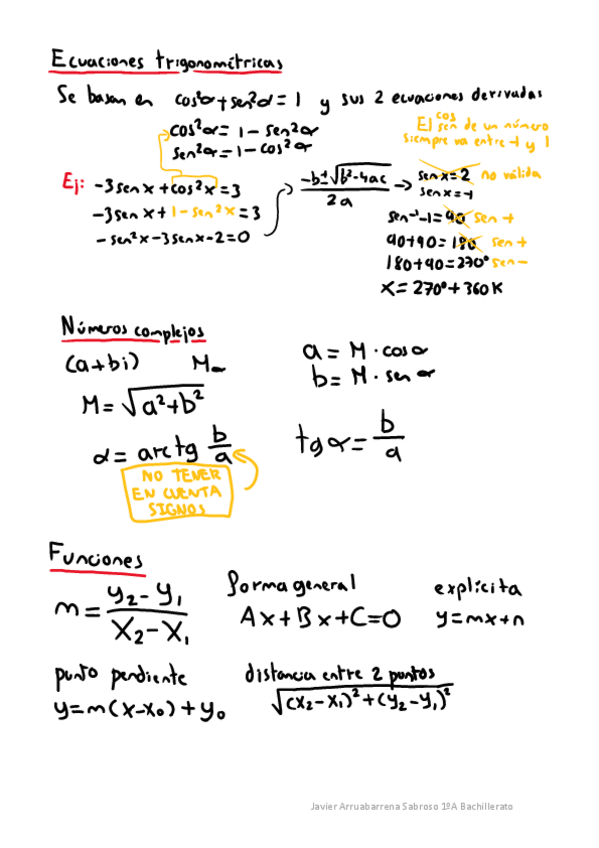 Ecuaciones trigonométricas
Se basan en cos²α+sen²α=1 y sus 2 ecuaciones derivadas
cos²α=1-sen²α
sen²α=1-cos²α
El sen cos de un número
siempre va entre -1 y 1
Ej: -3senx+cos²x=3
-3senx+1-sen²x=3
-sen²x-3senx-2=0
-b±√b²-4ac
2a
senx=2 no válida
senx=-1
sen⁻¹-1=90 sen+
90+90=180 sen+
180+90=270° sen-
x=270°+360K
Números complejos
(a+bi) Mα
M=√a²+b²
α=arctg b/a
NO TENER
EN CUENTA
SIGNOS
a=M·cosα
b=M·senα
tgα=b/a
Funciones
m=y₂-y₁/x₂-x₁
forma general
Ax+Bx+C=0
explícita
y=mx+n
punto pendiente
y=m(x-x₀)+y₀
distancia entre 2 puntos
√(x₂-x₁)²+(y₂-y₁)²
Javier Arruabarrena Sabroso 1ºA Bachillerato